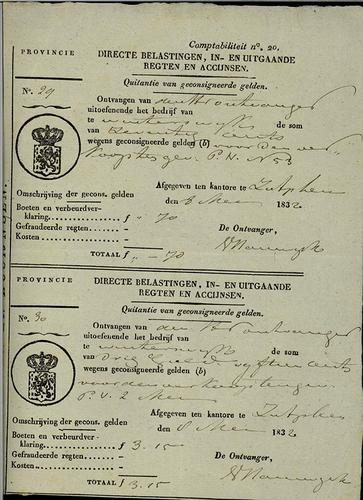 Comptabiliteit nº. 20.
PROVINCIE
DIRECTE BELASTINGEN, IN- EN UITGAANDE
REGTEN EN ACCIJNSEN.
Quitantie van geconsigneerde gelden.
Nº. 29
Ontvangen van den Ontvanger
uitoefenende het bedrijf van
te Winterswijk de som
van Zeventig Cents
wegens geconsigneerde gelden (b)
P. V. N 53
Afgegeven ten kantore te Zutphen
Omschrijving der gecons. gelden
den 8 Mei 1832
Boeten en verbeurdver-
klaring f " 70
De Ontvanger,
Gefraudeerde regten „
Kosten „
TOTAAL f " - 70
PROVINCIE
DIRECTE BELASTINGEN, IN- EN UITGAANDE
REGTEN EN ACCIJNSEN.
Quitantie van geconsigneerde gelden.
Nº. 30
Ontvangen van den Ontvanger
uitoefenende het bedrijf van
te Winterswijk de som
van Drie Guld vijftien cents
wegens geconsigneerde gelden (b)
P. V. 2 Mei
Afgegeven ten kantore te Zutphen
Omschrijving der gecons. gelden
den 8 Mei 1832
Boeten en verbeurdver-
klaring f 3.15
De Ontvanger,
Gefraudeerde regten „
Kosten „
TOTAAL f 3.15